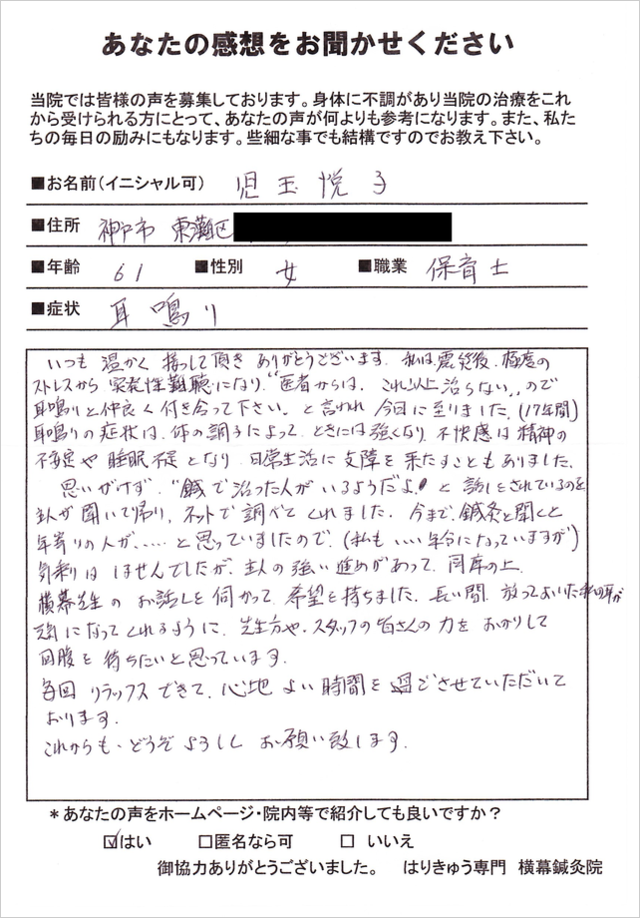 あなたの感想をお聞かせください
当院では皆様の声を募集しております。身体に不調があり当院の治療をこれ
から受けられる方にとって、あなたの声が何よりも参考になります。また、私た
ちの毎日の励みにもなります。些細な事でも結構ですのでお教え下さい。
■お名前(イニシャル可) 児玉悦子
■住所 神戸市 東灘区
■年齢 61 ■性別 女 ■職業 保育士
■症状 耳鳴り
いつも 温かく 接して頂き ありがとうございます。私は、震災後、極度の
ストレスから 突発性難聴になり、“医者からは、これ以上治らない、、ので
耳鳴りと仲良く付き合って下さい。と言われ 今日に至りました。(17年間)
耳鳴りの症状は、体の調子によって、ときには強くなり、不快感は精神の
不安定や 睡眠不足となり、日常生活に支障を来たすこともありました。
思いがけず、“鍼で治った人がいるようだよ!と 話しをされているのを
主人が聞いて帰り、ネットで調べてくれました。今まで、鍼灸と聞くと
年寄りの人が、…… と思っていましたので、(私も いい年令になっていますが)
気乗りは しませんでしたが、主人の強い進めがあって、同席の上、
横幕先生の お話しを伺がって、希望を持ちました。長い間、放っておいた私の耳が
元気になってくれるように、先生方や、スタッフの皆さんの力を おかりして
回腹を 待ちたいと思っています。
毎回 リラックスできて、心地よい時間を過ごさせていただいて
おります。
これからも、どうぞ よろしく お願い致します。
*あなたの声をホームページ・院内等で紹介しても良いですか?
☑はい □匿名なら可 □ いいえ
御協力ありがとうございました。 はりきゅう専門 横幕鍼灸院